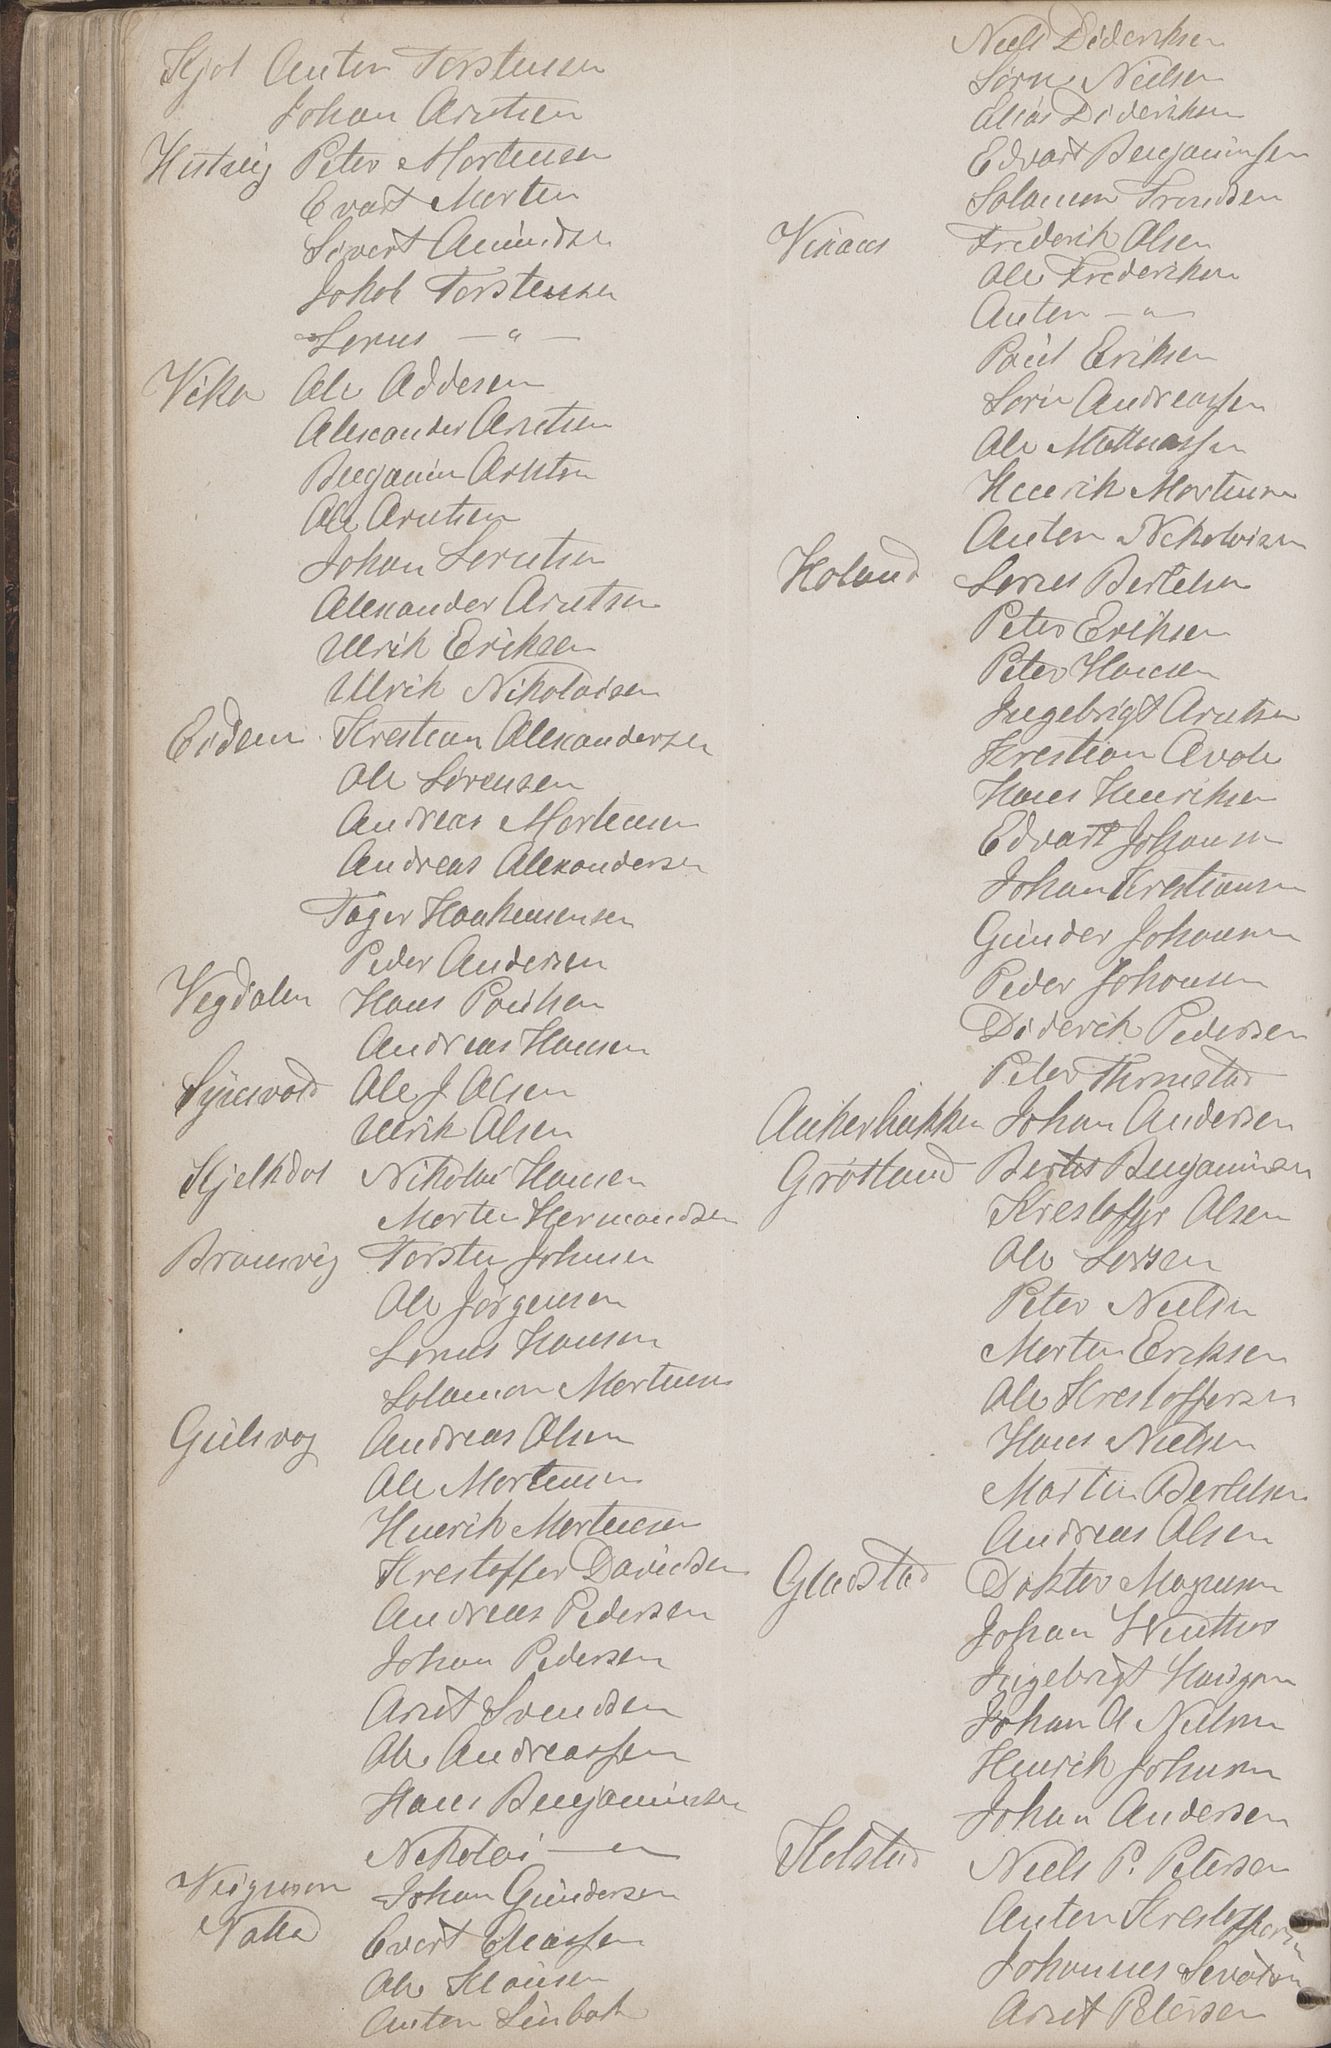 Kjol Anton Torstensen
Johan Arntsen
Hustvig Peter Mortensen
Evart Morten
Sivert Amundsen
Jokob Torstensen
Lorns — " —
Vika Ole Addesen
Alexander Arntsen
Benjamin Arntsen
Ole Arntsen
Johan Lorntsen
Alexander Arntsen
Ulrik Eriksen
Ulrik Nikolaisen
Erdem Krestian Alexandersen
Ole Sörensen
Andreas Mortensen
Andreas Alexandersen
Töger Haakensensen
Peder Andersen
Vegdalen Hans Poulsen
Andreas Hansen
Synesvold Ole J. Olsen
Ulrik Olsen
Kjelkdol Nikolai Hansen
Morten Hermandsen
Bransvig Torsten Johnsen
Ole Jörgensen
Lornts Hansen
Solomon Mortensen
Gulsvog Andreas Olsen
Ole Mortensen
Henrik Mortensen
Krestoffer Davidsen
Andreas Pedersen
Johan Pedersen
Arnt Svendsen
Ole Andreassen
Hans Benjaminsen
Nekolai — " —
Johan Gundersen
Evert Eliassen
Ole Klausen
Anton Linbak
Niels Dideriksen
Sörn Nielsen
Elias Dideriksen
Edvart Benjaminsen
Solomon Trondsen
Vikaus Frederik Olsen
Ole Frederiksen
Anton — " —
Poul Eriksen
Sörn Andreassen
Ole Mathiassen
Henrik Mortensen
Anton Nekolaisen
Holand Lornts Bertelsen
Peter Eriksen
Peter Hansen
Ingebrigt Arntsen
Krestian Avole
Hans Henriksen
Edvart Johansen
Johan Krestiansen
Gunder Johansen
Peder Johansen
Diderik Pedersen
Peter Thrnestad
Ankerbakken Johan Andersen
Grötland Bertes Benjaminsen
Krestoffer Olsen
Ole Larsen
Peter Nielsen
Morten Eriksen
Ole Krestoffersen
Hans Nielsen
Martin Bertelsen
Andreas Olsen
Gladstad Doktor Magnusen
Johan Winther
Ingebrigt Hansen
Johan A Nielsen
Henrik Johnsen
Johan Andersen
Kolstad Niels P. Petersen
Anton Krestoffersen
Johannes Sivertsen
Arnt Petersen